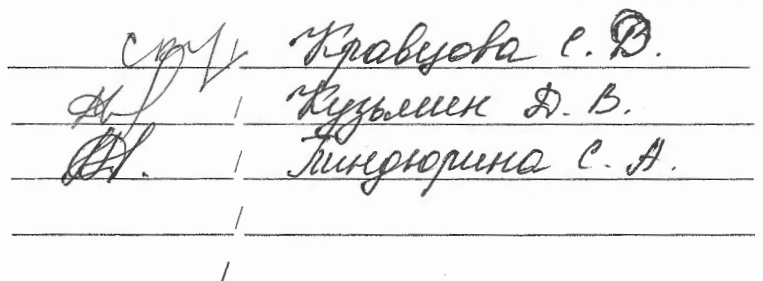 / Кравцова С. В.
/ Кузьмин Д. В.
/ Пиндюрина С. А.
/
/